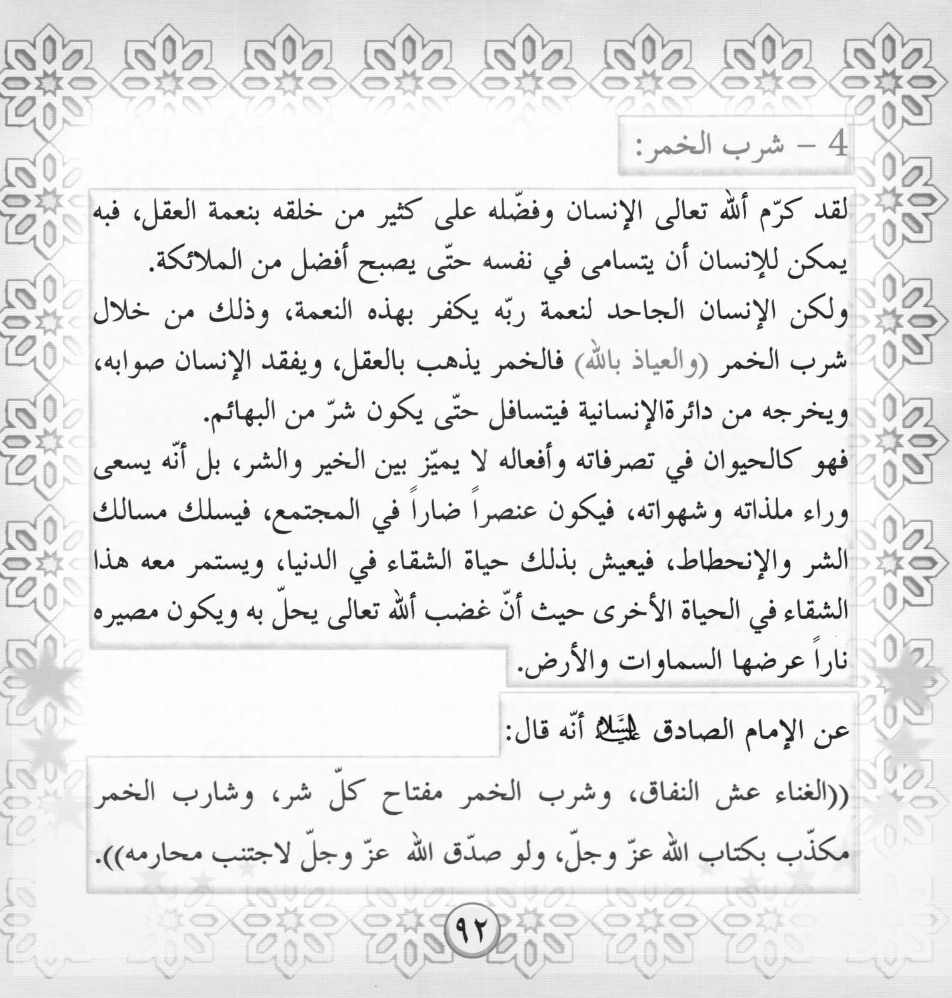 4 – شرب الخمر:
لقد كرّم ألله تعالى الإنسان وفضّله على كثير من خلقه بنعمة العقل، فبه
يمكن للإنسان أن يتسامى في نفسه حتّى يصبح أفضل من الملائكة.
ولكن الإنسان الجاحد لنعمة ربّه يكفر بهذه النعمة، وذلك من خلال
شرب الخمر (والعياذ بالله) فالخمر يذهب بالعقل، ويفقد الإنسان صوابه،
ويخرجه من دائرةالإنسانية فيتسافل حتّى يكون شرّ من البهائم.
فهو كالحيوان في تصرفاته وأفعاله لا يميّز بين الخير والشر، بل أنّه يسعى
وراء ملذاته وشهواته، فيكون عنصراً ضاراً في المجتمع، فيسلك مسالك
الشر والإنحطاط، فيعيش بذلك حياة الشقاء في الدنيا، ويستمر معه هذا
الشقاء في الحياة الأخرى حيث أنّ غضب ألله تعالى يحلّ به ويكون مصيره
ناراً عرضها السماوات والأرض.
عن الإمام الصادق عليه السلام أنّه قال:
((الغناء عش النفاق، وشرب الخمر مفتاح كلّ شر، وشارب الخمر
مكذّب بكتاب الله عزّ وجلّ، ولو صدّق الله عزّ وجلّ لاجتنب محارمه)).
٩٢